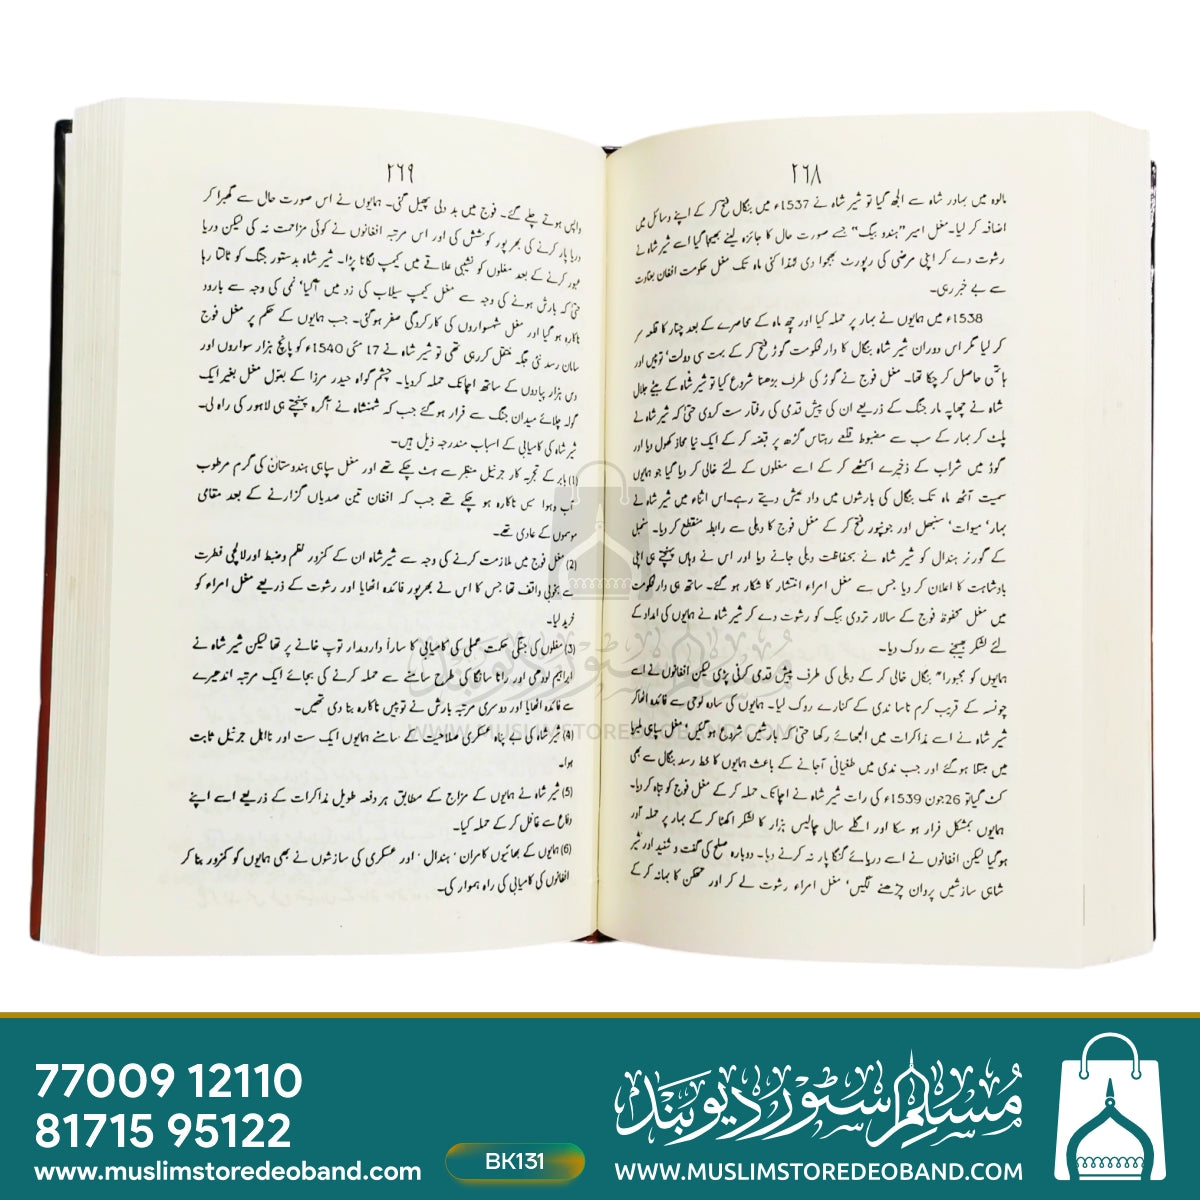 ۲۶۸
مالوہ میں بہادر شاہ سے الجھ گیا تو شیر شاہ نے 1537ء میں بنگال فتح کر کے اپنے وسائل میں
اضافہ کر لیا۔ مغل امیر "ہندو بیگ" جسے صورت حال کا جائزہ لینے بھیجا گیا اسے شیر شاہ نے
رشوت دے کر اپنی مرضی کی رپورٹ بھجوا دی لہٰذا کئی ماہ تک مغل حکومت افغان بغاوت
سے بے خبر رہی۔
1538ء میں ہمایوں نے بہار پر حملہ کیا اور چھ ماہ کے محاصرے کے بعد چنار کا قلعہ سر
کر لیا مگر اس دوران شیر شاہ بنگال کا دارلحکومت گوڑ فتح کر کے بہت سی دولت' توپیں اور
ہاتھی حاصل کر چکا تھا۔ مغل فوج نے گوڑ کی طرف بڑھنا شروع کیا تو شیر شاہ کے بیٹے جلال
شاہ نے چھاپہ مار جنگ کے ذریعے ان کی پیش قدمی کی رفتار ست کر دی حتیٰ کہ شیر شاہ نے
پلٹ کر بہار کے سب سے مضبوط قلعے رہتاس گڑھ پر قبضہ کر کے ایک نیا محاذ کھول دیا اور
گوڑ میں شراب کے ذخیرے اکٹھے کر کے اسے مغلوں کے لئے خالی کر دیا گیا جو ہمایوں
سمیت آٹھ ماہ تک بنگال کی بارشوں میں داد عیش دیتے رہے۔ اس اثناء میں شیر شاہ نے
بہار' میوات' سنبھل اور جونپور فتح کر کے مغل فوج کا دہلی سے رابطہ منقطع کر دیا۔ سنبھل
کے گورنر ہندال کو شیر شاہ نے بحفاظت دہلی جانے دیا اور اس نے وہاں پہنچتے ہی اپنی
بادشاہت کا اعلان کر دیا جس سے مغل امراء انتشار کا شکار ہو گئے۔ ساتھ ہی دارلحکومت
میں مغل محفوظ فوج کے سالار تردی بیگ کو رشوت دے کر شیر شاہ نے ہمایوں کی امداد کے
لئے لشکر بھیجنے سے روک دیا۔
ہمایوں کو مجبوراً بنگال خالی کر کے دہلی کی طرف پیش قدمی کرنی پڑی لیکن افغانوں نے اسے
چونسہ کے قریب کرم ناسا ندی کے کنارے روک لیا۔ ہمایوں کی سادہ لوحی سے فائدہ اٹھا کر
شیر شاہ نے اسے مذاکرات میں الجھائے رکھا حتیٰ کہ بارشیں شروع ہو گئیں' مغل سپاہی ملیریا
میں مبتلا ہو گئے اور جب ندی میں طغیانی آجانے کے باعث ہمایوں کا خط رسد بنگال سے بھی
کٹ گیا تو 26 جون 1539ء کی رات شیر شاہ نے اچانک حملہ کر کے مغل فوج کو تباہ کر دیا۔
ہمایوں بمشکل فرار ہو سکا اور اگلے سال چالیس ہزار کا لشکر اکٹھا کر کے بہار پر حملہ آور
ہو گیا لیکن افغانوں نے اسے دریائے گنگا پار نہ کرنے دیا۔ دوبارہ صلح کی گفت و شنید اور شیر
شاہی سازشیں پروان چڑھنے لگیں' مغل امراء رشوت لے کر اور تھکن کا بہانہ کر کے
۲۶۹
واپس ہوتے چلے گئے۔ فوج میں بد دلی پھیل گئی۔ ہمایوں نے اس صورت حال سے گھبرا کر
دریا پار کرنے کی بھر پور کوشش کی اور اس مرتبہ افغانوں نے کوئی مزاحمت نہ کی لیکن دریا
عبور کرنے کے بعد مغلوں کو نشیبی علاقے میں کیمپ لگانا پڑا۔ شیر شاہ بدستور جنگ کو ٹالتا رہا
حتیٰ کہ بارش ہونے کی وجہ سے مغل کیمپ سیلاب کی زد میں آگیا' نمی کی وجہ سے بارود
ناکارہ ہو گیا اور مغل شہسواروں کی کارکردگی صفر ہو گئی۔ جب ہمایوں کے حکم پر مغل فوج
سامان رسد نئی جگہ منتقل کر رہی تھی تو شیر شاہ نے 17 مئی 1540ء کو پانچ ہزار سواروں اور
دس ہزار پیادوں کے ساتھ اچانک حملہ کر دیا۔ چشم گواہ حیدر مرزا کے بقول مغل بغیر ایک
گولہ چلائے میدان جنگ سے فرار ہو گئے جب کہ شہنشاہ نے آگرہ پہنچتے ہی لاہور کی راہ لی۔
شیر شاہ کی کامیابی کے اسباب مندرجہ ذیل ہیں۔
(1) بابر کے تجربہ کار جرنیل منظر سے ہٹ چکے تھے اور مغل سپاہی ہندوستان کی گرم مرطوب
آب وہوا میں ناکارہ ہو چکے تھے جب کہ افغان تین صدیاں گزارنے کے بعد مقامی
موسموں کے عادی تھے۔
(2) مغل فوج میں ملازمت کرنے کی وجہ سے شیر شاہ ان کے کمزور نظم وضبط اور لالچی فطرت
سے بخوبی واقف تھا جس کا اس نے بھرپور فائدہ اٹھایا اور رشوت کے ذریعے مغل امراء کو
خرید لیا۔
(3) مغلوں کی جنگی حکمت عملی کی کامیابی کا سارا دارومدار توپ خانے پر تھا لیکن شیر شاہ نے
ابراہیم لودھی اور رانا سانگا کی طرح سامنے سے حملہ کرنے کی بجائے ایک مرتبہ اندھیرے
سے فائدہ اٹھایا اور دوسری مرتبہ بارش نے توپیں ناکارہ بنا دی تھیں۔
(4) شیر شاہ کی بے پناہ عسکری صلاحیت کے سامنے ہمایوں ایک ست اور نااہل جرنیل ثابت
ہوا۔
(5) شیر شاہ نے ہمایوں کے مزاج کے مطابق ہر دفعہ طویل مذاکرات کے ذریعے اسے اپنے
دفاع سے غافل کر کے حملہ کیا۔
(6) ہمایوں کے بھائیوں کامران' ہندال' اور عسکری کی سازشوں نے بھی ہمایوں کو کمزور بنا کر
افغانوں کی کامیابی کی راہ ہموار کی۔
مسلم سٹور دیوبند
WWW.MUSLIMSTOREDEOBAND.COM
77009 12110
81715 95122
www.muslimstoredeoband.com
BK131
مسلم سٹور دیوبند
WWW.MUSLIMSTOREDEOBAND.COM